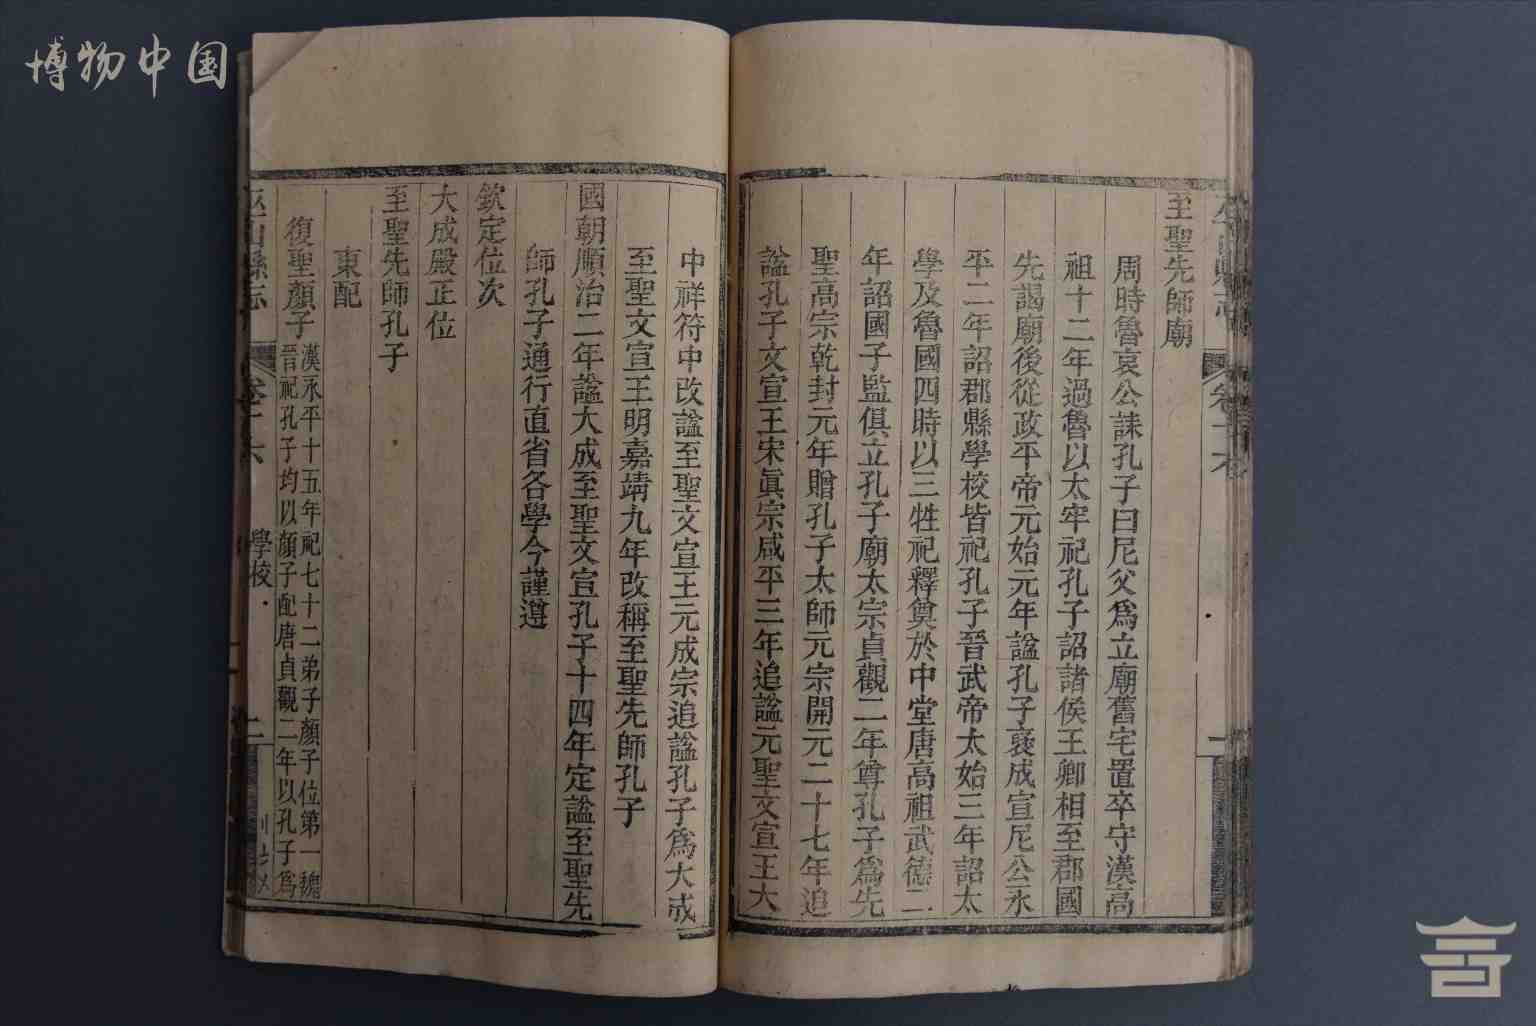 博物中国
至聖先師廟
周時魯哀公誄孔子曰尼父爲立廟舊宅置卒守漢高
祖十二年過魯以太牢祀孔子詔諸侯王卿相至郡國
先謁廟後從政平帝元始元年諡孔子襃成宣尼公永
平二年詔郡縣學校皆祀孔子晉武帝太始三年詔太
學及魯國四時以三牲祀釋奠於中堂唐高祖武德二
年詔國子監俱立孔子廟太宗貞觀二年尊孔子爲先
聖高宗乾封元年贈孔子太師元宗開元二十七年追
諡孔子文宣王宋眞宗咸平三年追諡元聖文宣王大
中祥符中改諡至聖文宣王元成宗追諡孔子爲大成
至聖文宣王明嘉靖九年改稱至聖先師孔子
國朝順治二年諡大成至聖文宣孔子十四年定諡至聖先
師孔子通行直省各學今謹遵
欽定位次
大成殿正位
至聖先師孔子
東配
復聖顏子
漢永平十五年祀七十二弟子顏子位第一魏
晉祀孔子均以顏子配唐貞觀二年以孔子爲
巫山縣志
學校
二